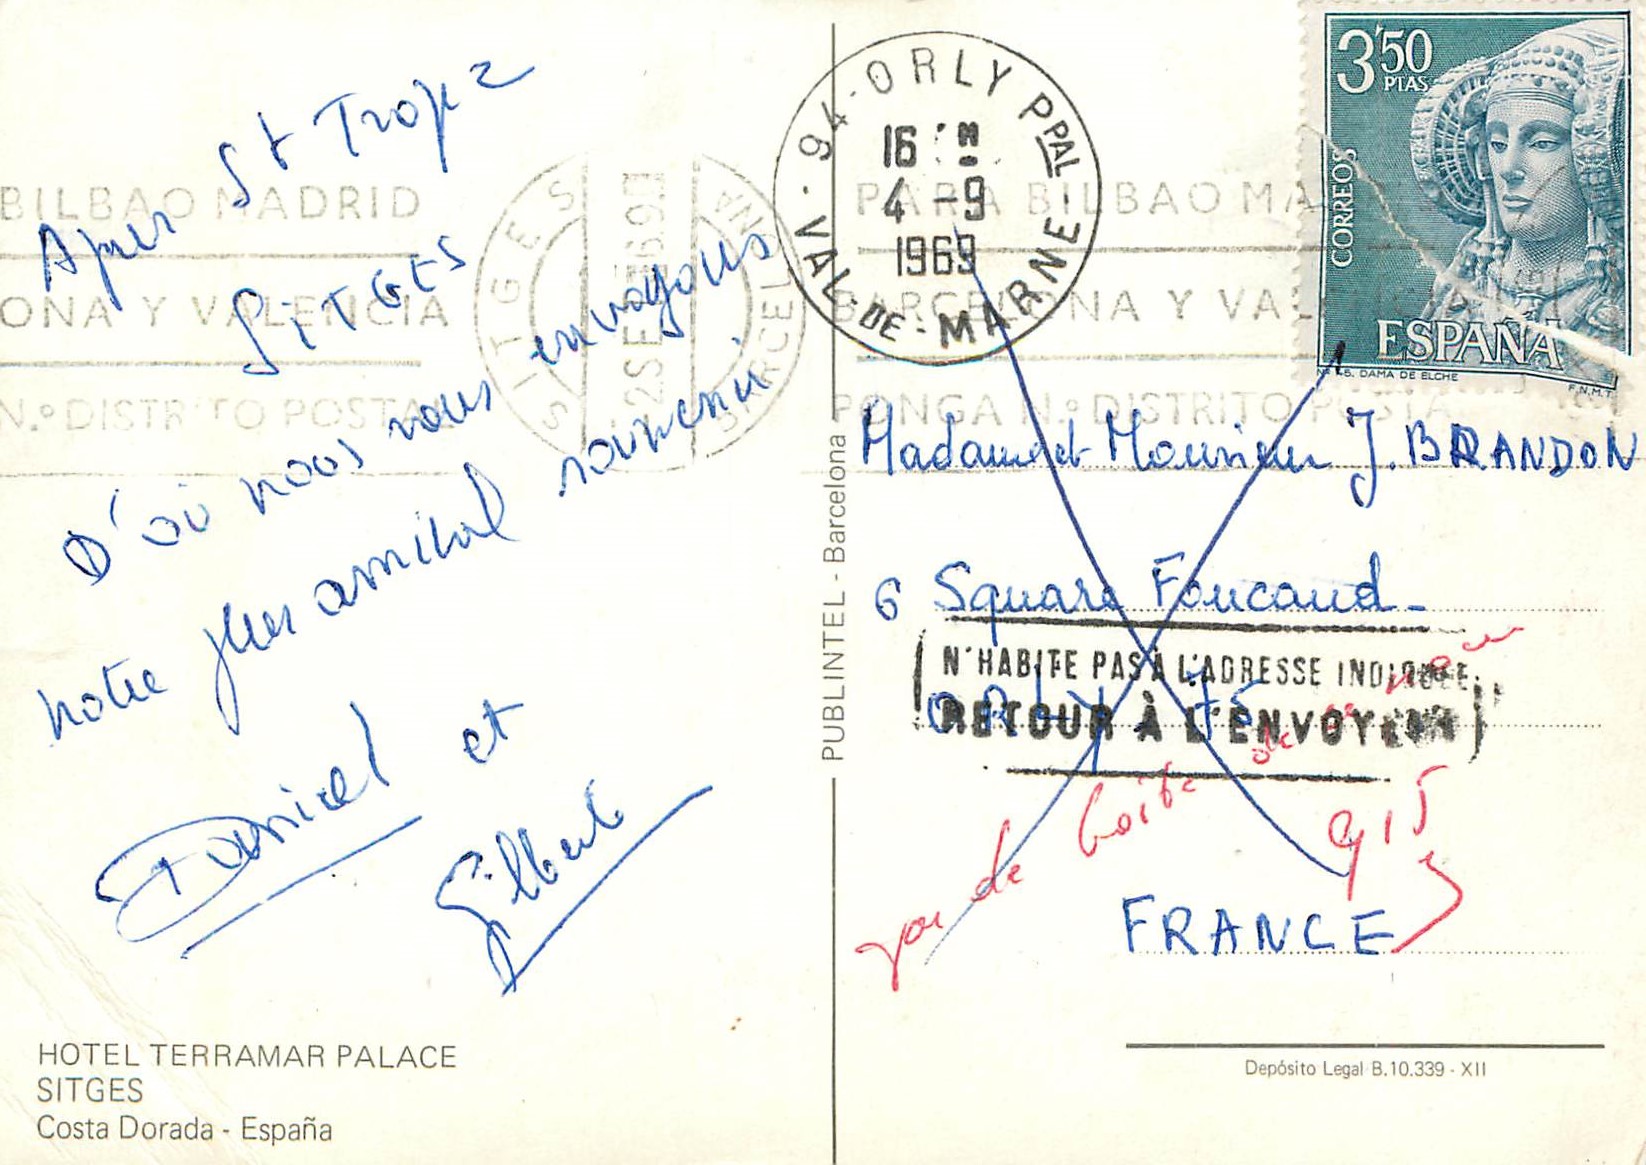 Après St Tropez
SITGES
D'où nous vous envoyons
notre plus amical souvenir
Daniel et
Gilbert
HOTEL TERRAMAR PALACE
SITGES
Costa Dorada - España
PUBLINTEL - Barcelona
BILBAO MADRID
ONA Y VALENCIA
N.º DISTRITO POSTA
SITGES
BARCELONA
2 SE
94 - ORLY PPAL
16 H
4 - 9
1969
VAL-DE-MARNE
PARA BILBAO MA
BARCELONA Y VAL
PONGA N.º DISTRITO POSTA
3'50
PTAS
CORREOS
ESPAÑA
DAMA DE ELCHE
F.N.M.T.
Madame et Monsieur J. BRANDON
6 Square Foucaud
N'HABITE PAS À L'ADRESSE INDIQUÉE
ORLY 75
RETOUR À L'ENVOYEUR
pas de boîte de ce nom
915
FRANCE
Depósito Legal B.10.339 - XII